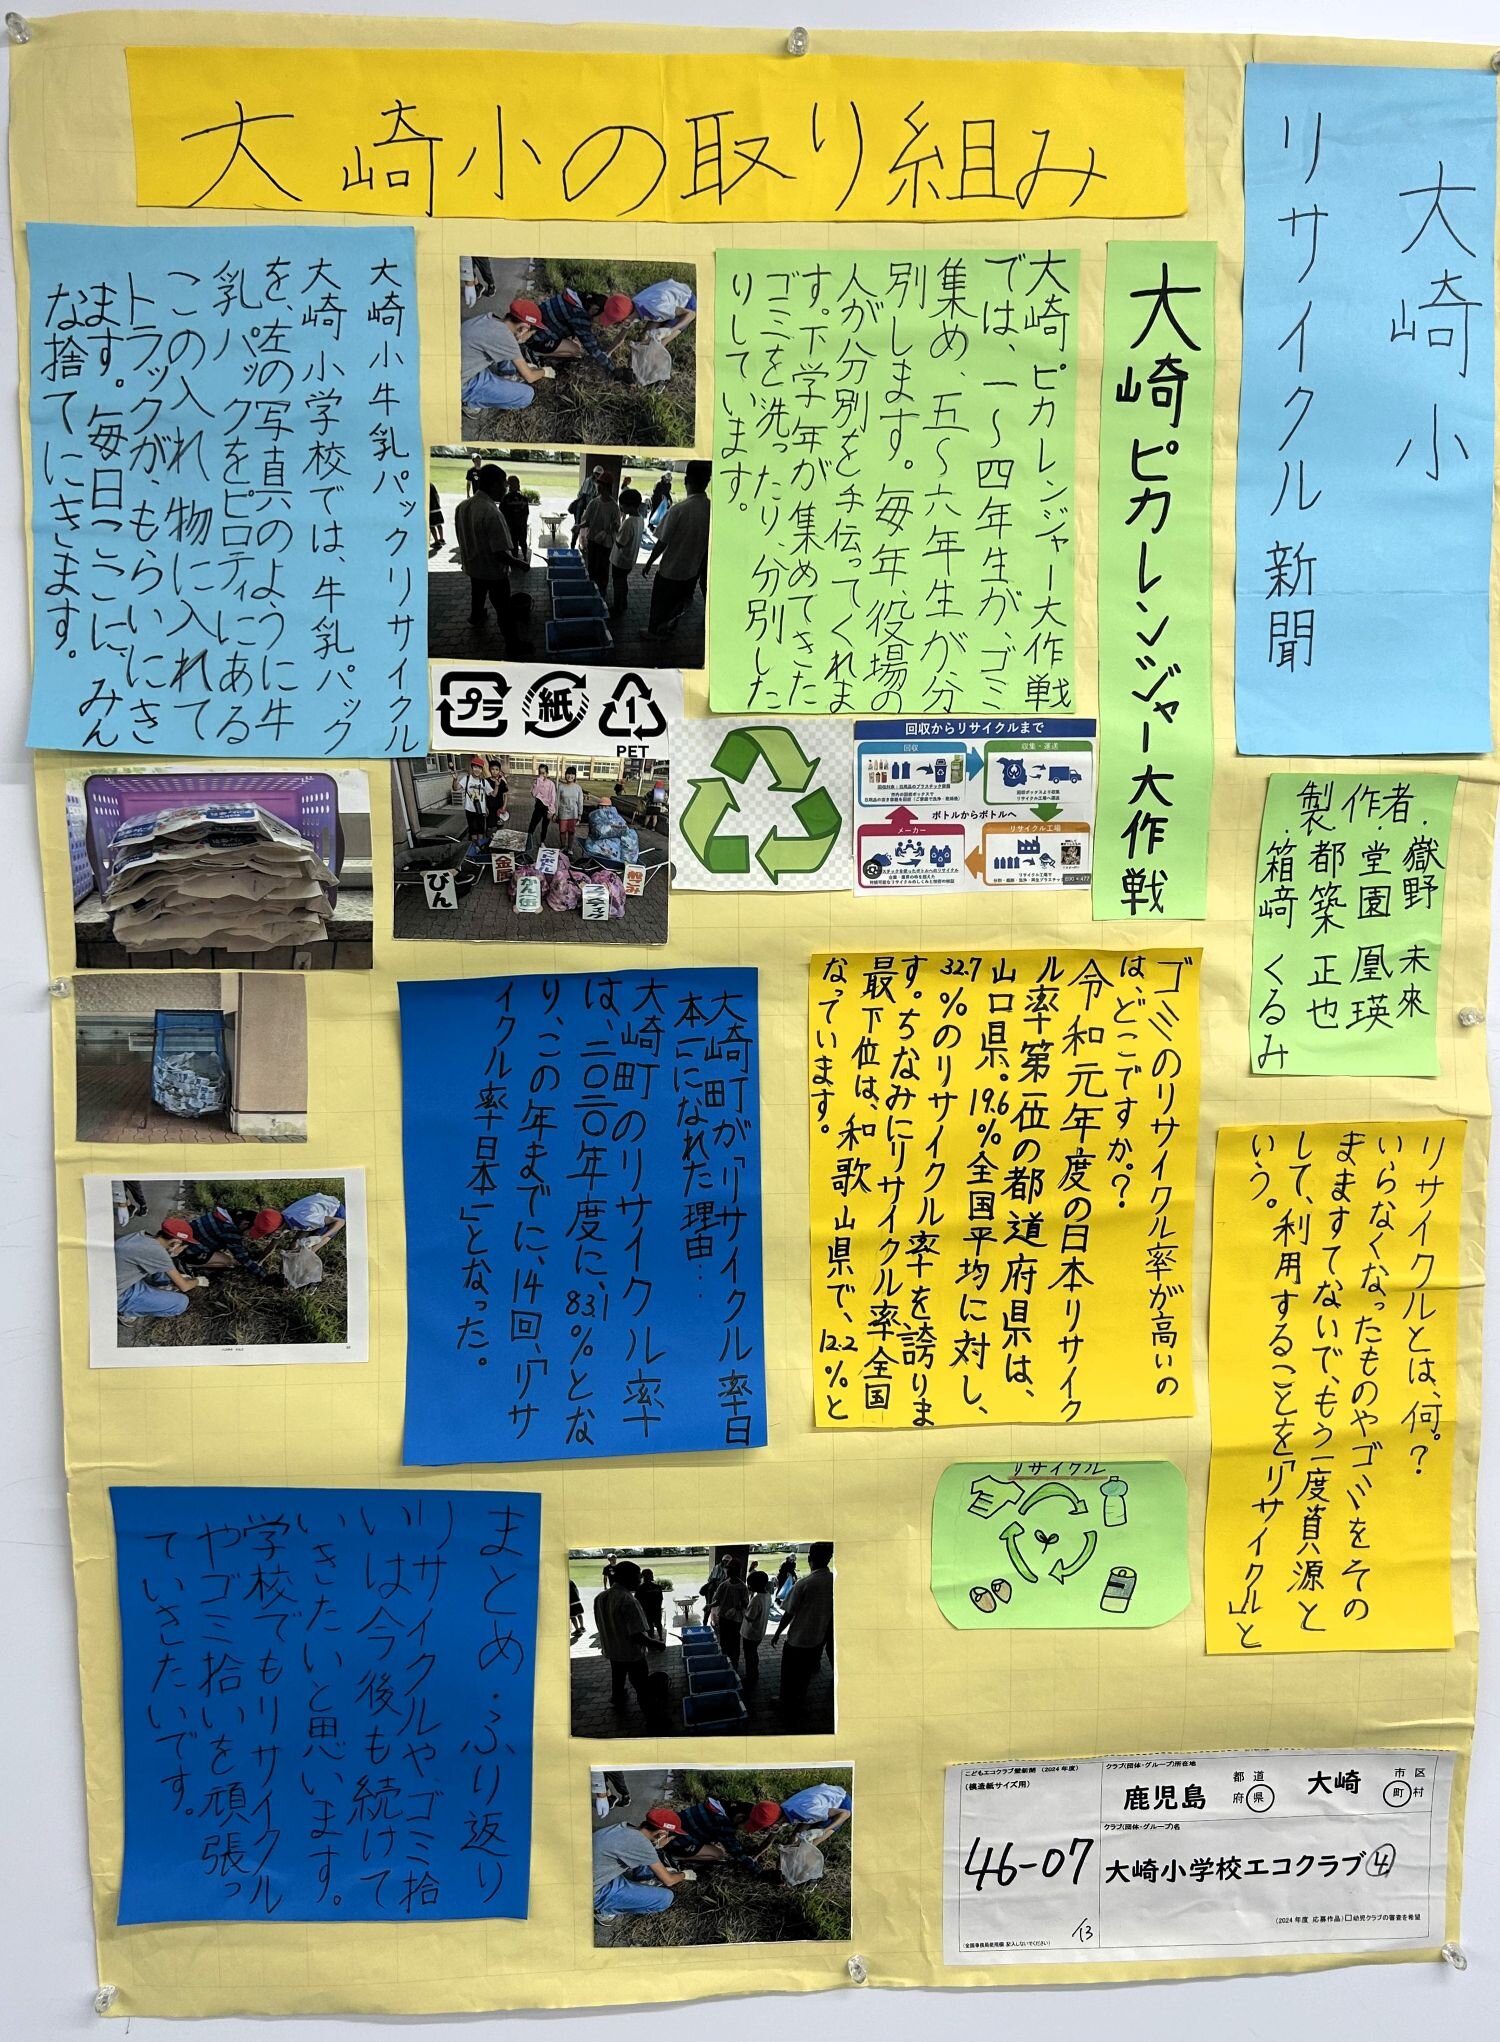 大崎小の取り組み
大崎小
リサイクル新聞
製作者・嶽野 未來
・堂園 凰瑛
・都築 正也
・箱﨑 くるみ
リサイクルとは、何。?
いらなくなったものやゴミをその
まますてないで、もう一度資源と
して、利用することを「リサイクル」と
いう。
大崎ピカレンジャー大作戦
大崎ピカレンジャー大作戦
では、一〜四年生が、ゴミ
集め、五〜六年生が、分
別します。毎年、役場の
人が分別を手伝ってくれま
す。下学年が集めてきた
ゴミを洗ったり、分別した
りしています。
ゴミのリサイクル率が高いの
は、どこですか。?
令和元年度の日本リサイク
ル率第一位の都道府県は、
山口県。19.6%全国平均に対し、
32.7%のリサイクル率を誇りま
す。ちなみにリサイクル率全国
最下位は、和歌山県で、12.2%と
なっています。
リサイクル
回収からリサイクルまで
回収
収集・運送
ボトルからボトルへ
メーカー
リサイクル工場
プラ
紙
1
PET
びん
金属
かん
一般ごみ
大崎小牛乳パックリサイクル
大崎小学校では、牛乳パック
を、左の写真のように牛
乳パックをピロティにある
この入れ物に入れて
トラックが、もらいにき
ます。毎日ここに、みん
な捨てにきます。
大崎町が「リサイクル率日
本一」になれた理由…
大崎町のリサイクル率
は、二〇二〇年度に、83.1%とな
り、この年までに、14回、「リサ
イクル率日本一」となった。
まとめ・ふり返り
リサイクルや、ゴミ拾
いは今後も続けて
いきたいと思います。
学校でもリサイクル
やゴミ拾いを頑張っ
ていきたいです。
こどもエコクラブ壁新聞 (2024年度)
(模造紙サイズ用)
46-07
13
(全国事務局使用欄 記入しないでください)
クラブ(団体・グループ)所在地
鹿児島 都道府県 大崎 市区町村
クラブ(団体・グループ)名
大崎小学校エコクラブ④
(2024年度 応募作品) □幼児クラブの審査を希望